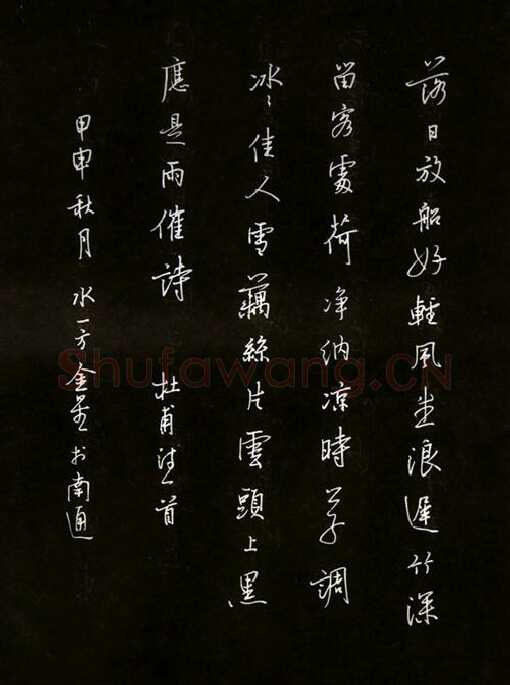 落日放船好輕風生浪遲竹深
留客處荷净納凉時公子調
冰々佳人雪藕絲片雲頭上黑
應是雨催詩 杜甫詩一首
甲申秋月 水一方金於南通
Shufawang.CN